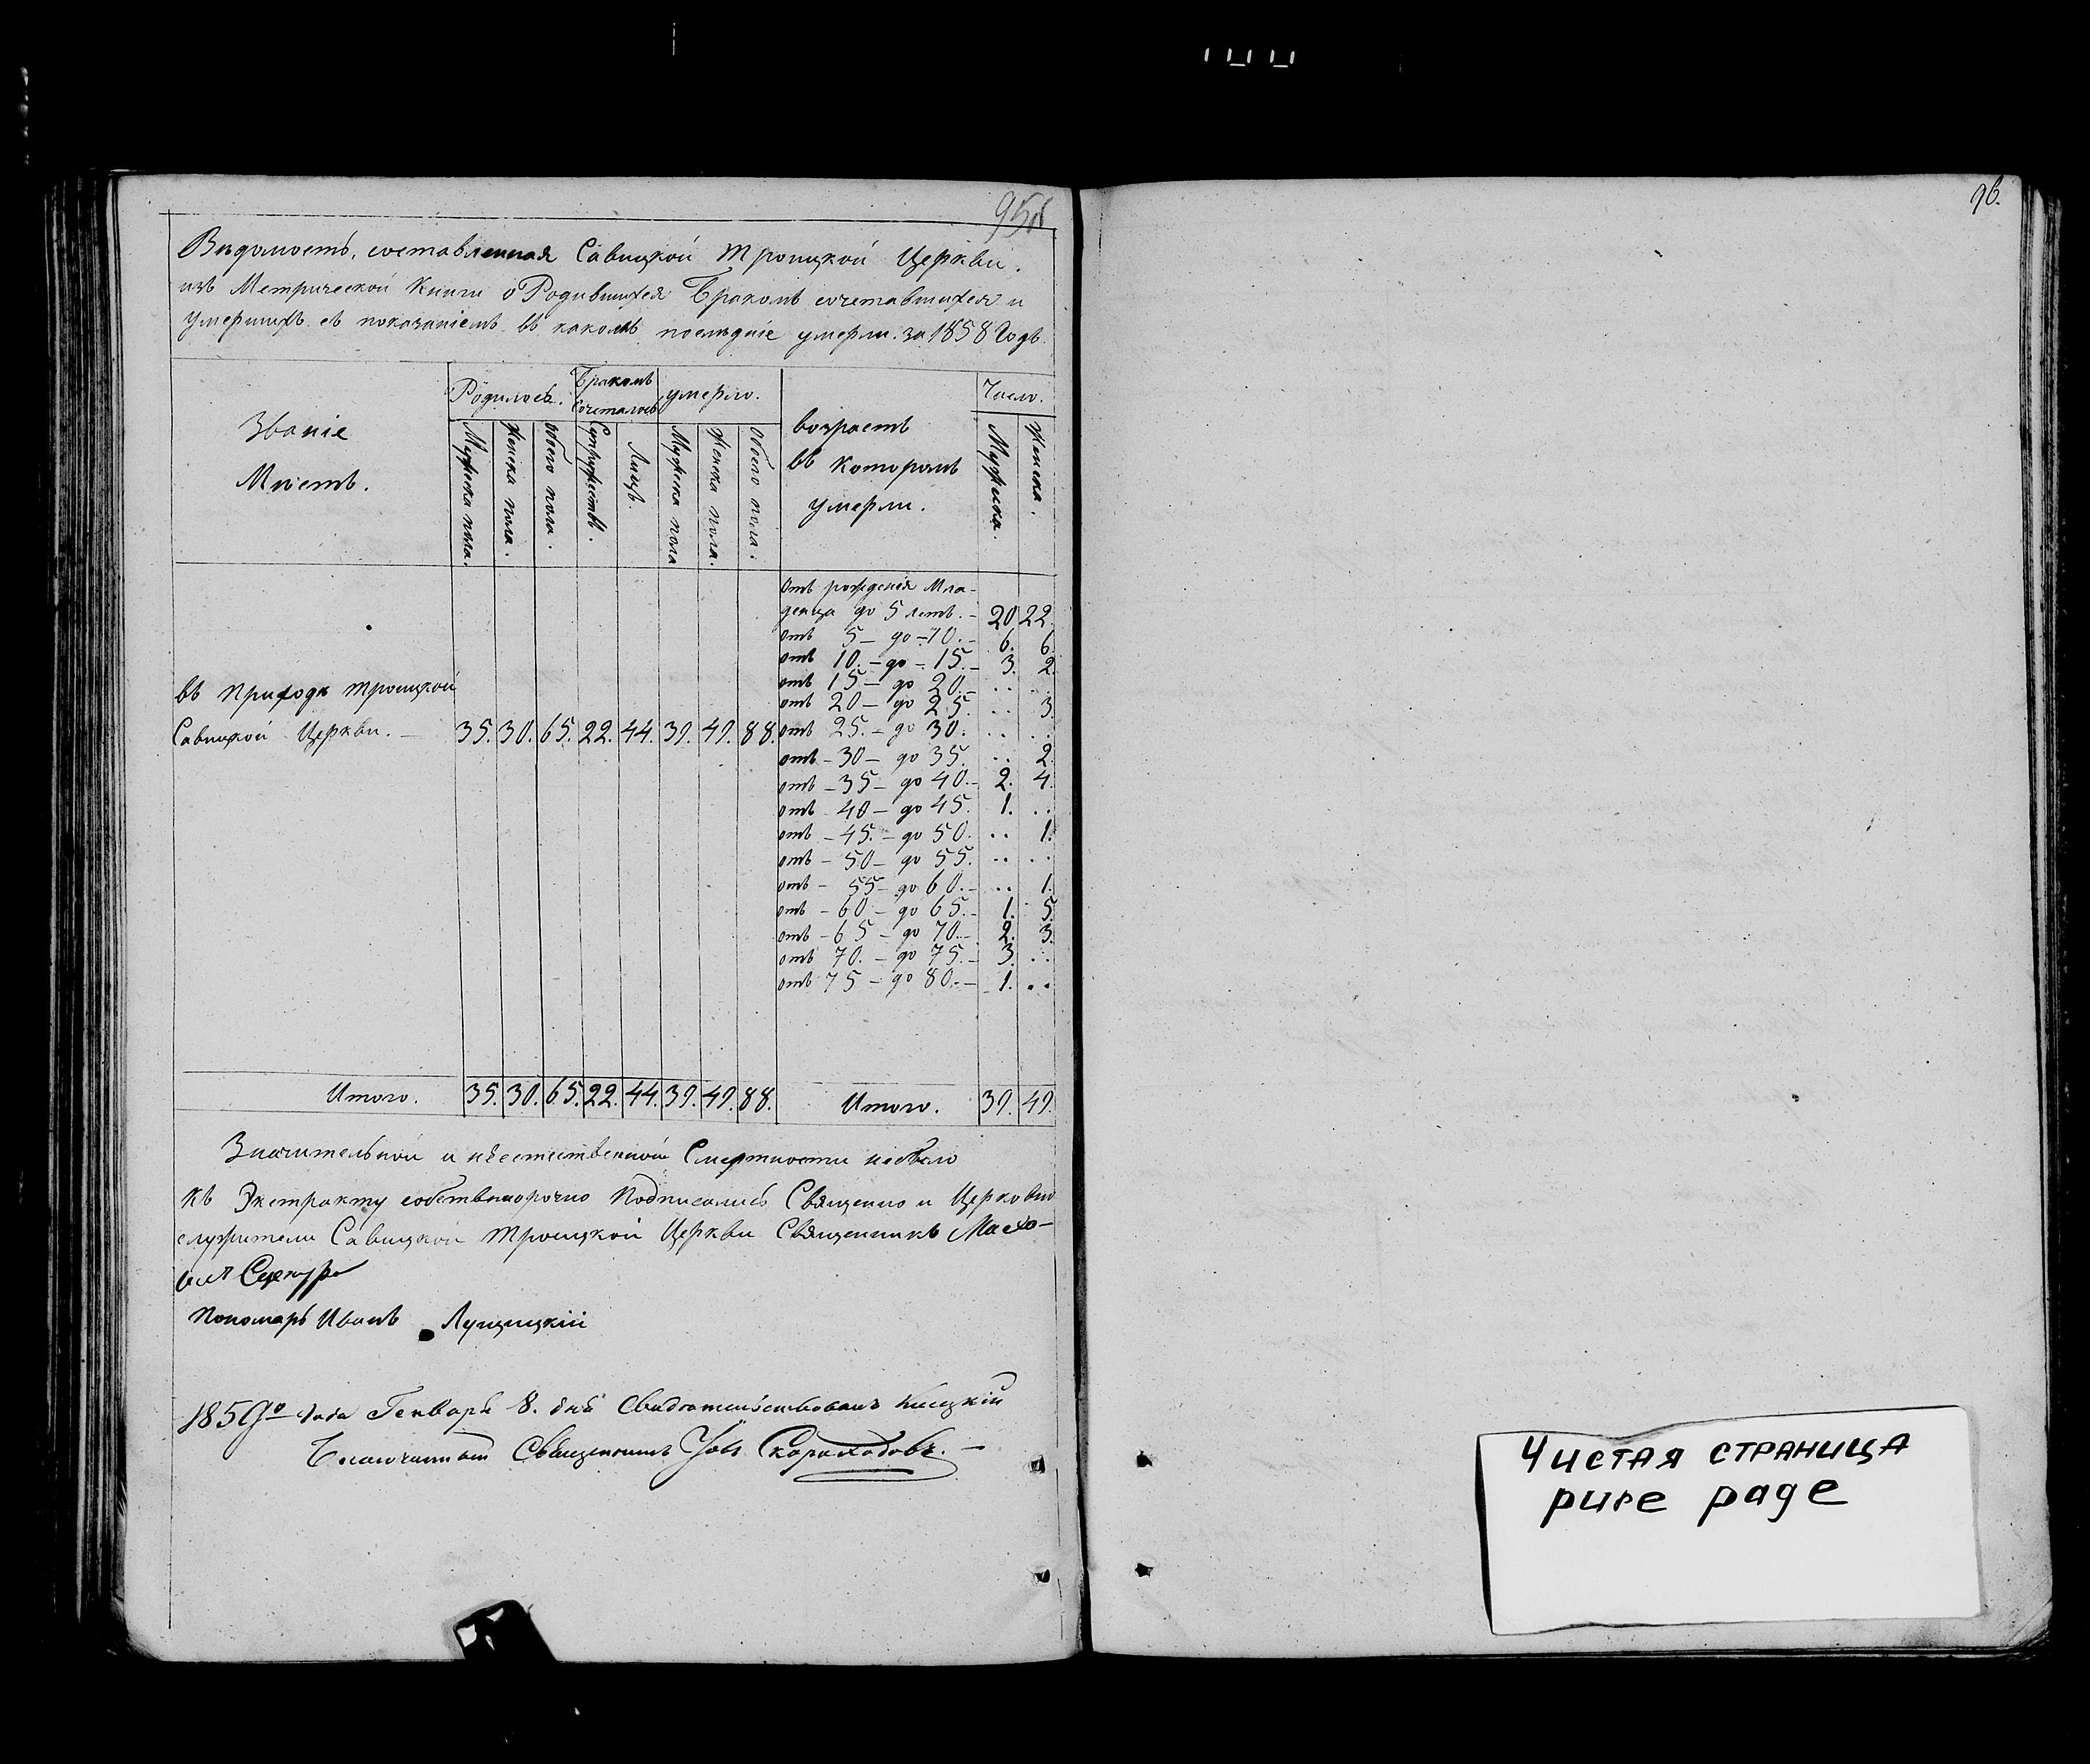 95об
Вѣдомость, составленная Савицкой Троицкой Церкви.
изъ Метрической Книги о Родившихся Бракомъ сочетавшихся и
умершихъ съ показаніемъ въ какомъ послѣдніе умерли. за 1858 Годъ.
Званіе Мѣстъ.
Родилось. Бракомъ Сочеталось умерло.
возрастъ въ которомъ умерли.
Число.
Мужеска пола. Женска пола. обоего пола. Супружествъ. Лицъ. Мужеска пола Женска пола. Обоего пола. Мужска. Женска.
Отъ рожденія Мла-
денца до 5 летъ. – 20 22.
отъ 5 – до – 10. – 6. 6.
отъ 10. – до – 15. – 3. 2.
отъ 15 – до 20. – .. ..
отъ 20 – до 25. .. 3.
въ Приходѣ Троицкой
Савицкой Церкви. – 35. 30. 65. 22. 44. 39. 49. 88. отъ 25. – до 30. .. ..
отъ – 30 – до 35. .. 2.
отъ – 35 – до 40. – 2. 4.
отъ 40 – до 45. 1. ..
отъ – 45. – до 50. .. 1.
отъ – 50 – до 55. .. ..
отъ – 55 – до 60. – .. 1.
отъ – 60 – до 65. – 1. 5.
отъ – 65 – до 70. – 2. 3.
отъ 70. – до 75. – 3. ..
отъ 75 – до 80. – 1. ..
Итого. 35. 30. 65. 22. 44. 39. 49. 88. Итого. 39. 49.
Значительной и неестественной Смертности небыло
къ Экстракту собственоручно Подписались Священно и Церковно
служители Савицкой Троицкой Церкви Священникъ
Пономарь Иванъ Лущицкій
1859го Года Генваря 8. дня Свидетельствовалъ
Благочинный Священникъ Скороходовъ. –
96.
Чистая страница
pure page